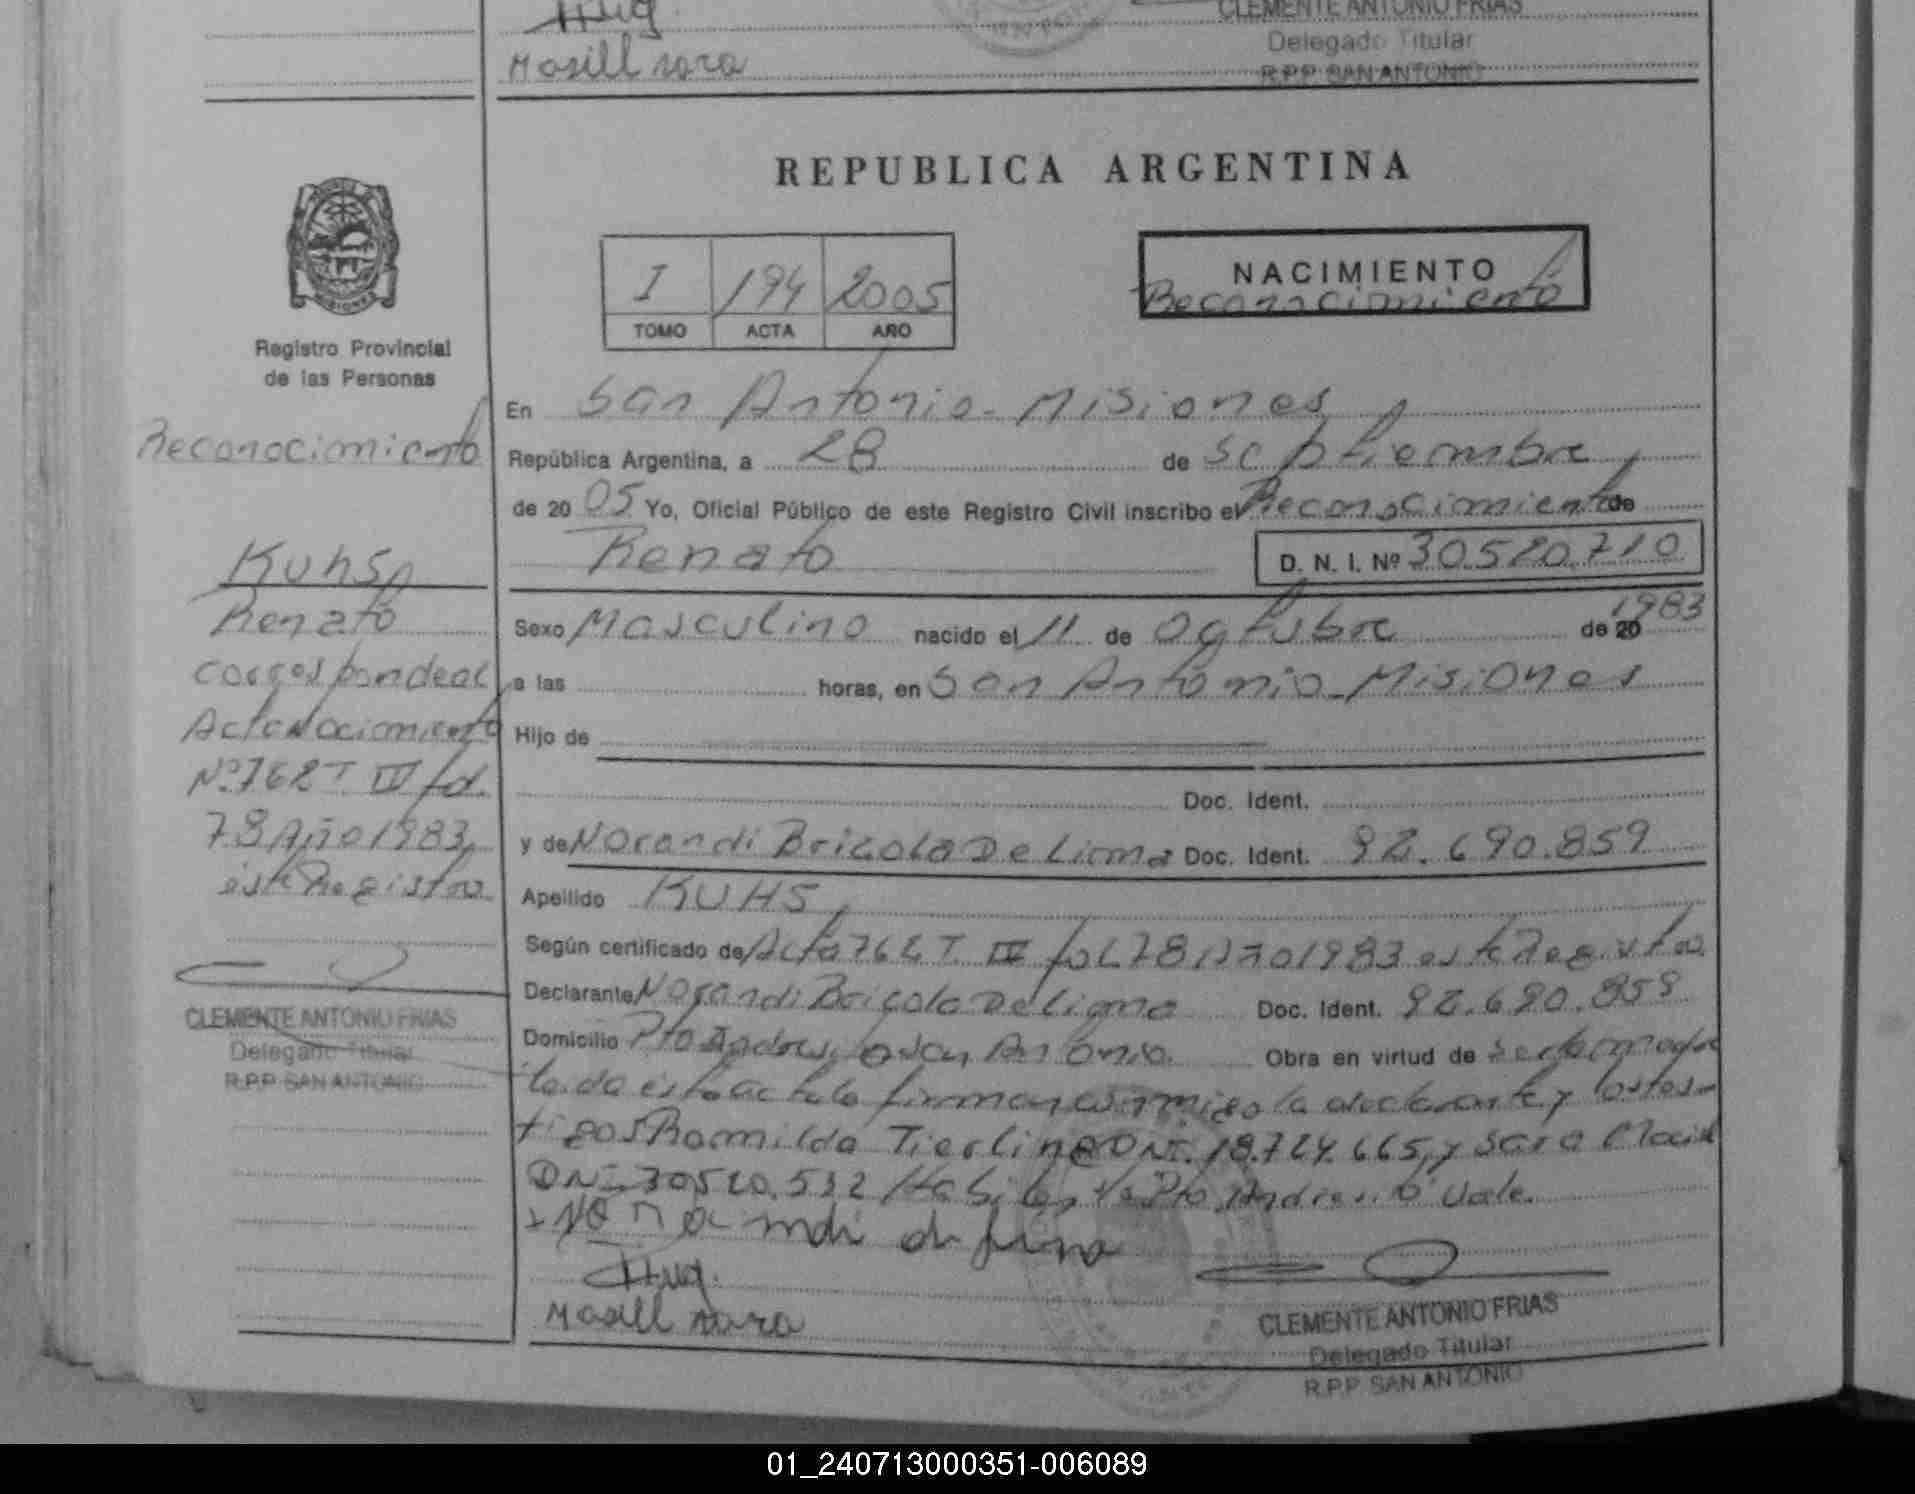 CLEMENTE ANTONIO FRIAS
Delegado Titular
Masill sara
R.P.P. SAN ANTONIO
REPUBLICA ARGENTINA
I 194 2005
TOMO ACTA AÑO
NACIMIENTO
Reconocimiento
Registro Provincial
de las Personas
Reconocimiento
KUHS
Renato
corresponde al
Acta Nacimiento
Nº 762 T. IV fol.
78 Año 1983
este Registro
CLEMENTE ANTONIO FRIAS
Delegado Titular
R.P.P. SAN ANTONIO
En San Antonio - Misiones
República Argentina, a 28 de Septiembre
de 20 05 Yo, Oficial Público de este Registro Civil inscribo el Reconocimiento de
Renato D. N. I. Nº 30.520.710
Sexo Masculino nacido el 11 de Octubre de 20 1983
a las horas, en San Antonio - Misiones
Hijo de
Doc. Ident.
y de Norandi Bricola De Lima Doc. Ident. 92.690.859
Apellido KUHS
Según certificado de Acta 762 T. IV fol. 78 Año 1983 este Registro
Declarante Norandi Bricola De Lima Doc. Ident. 92.690.859
Domicilio Pto Andresito San Antonio Obra en virtud de
leida esta acta la firman conmigo la declarante y los tes-
tigos Romilda Tierling DNI. 18.724.665, y Sara
DNI. 30520.532 Habiles Pto Andres.
di lima
Masill sara
CLEMENTE ANTONIO FRIAS
Delegado Titular
R.P.P. SAN ANTONIO
01_240713000351-006089